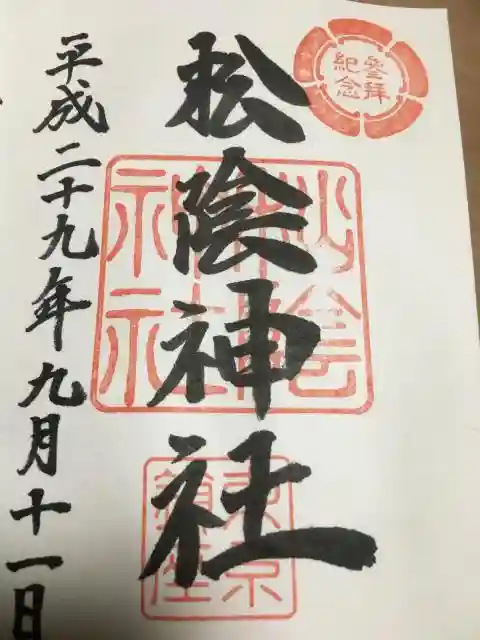 参拝
紀念
松陰神社
松陰
神社
東京
鎮座
平成二十九年九月十一日